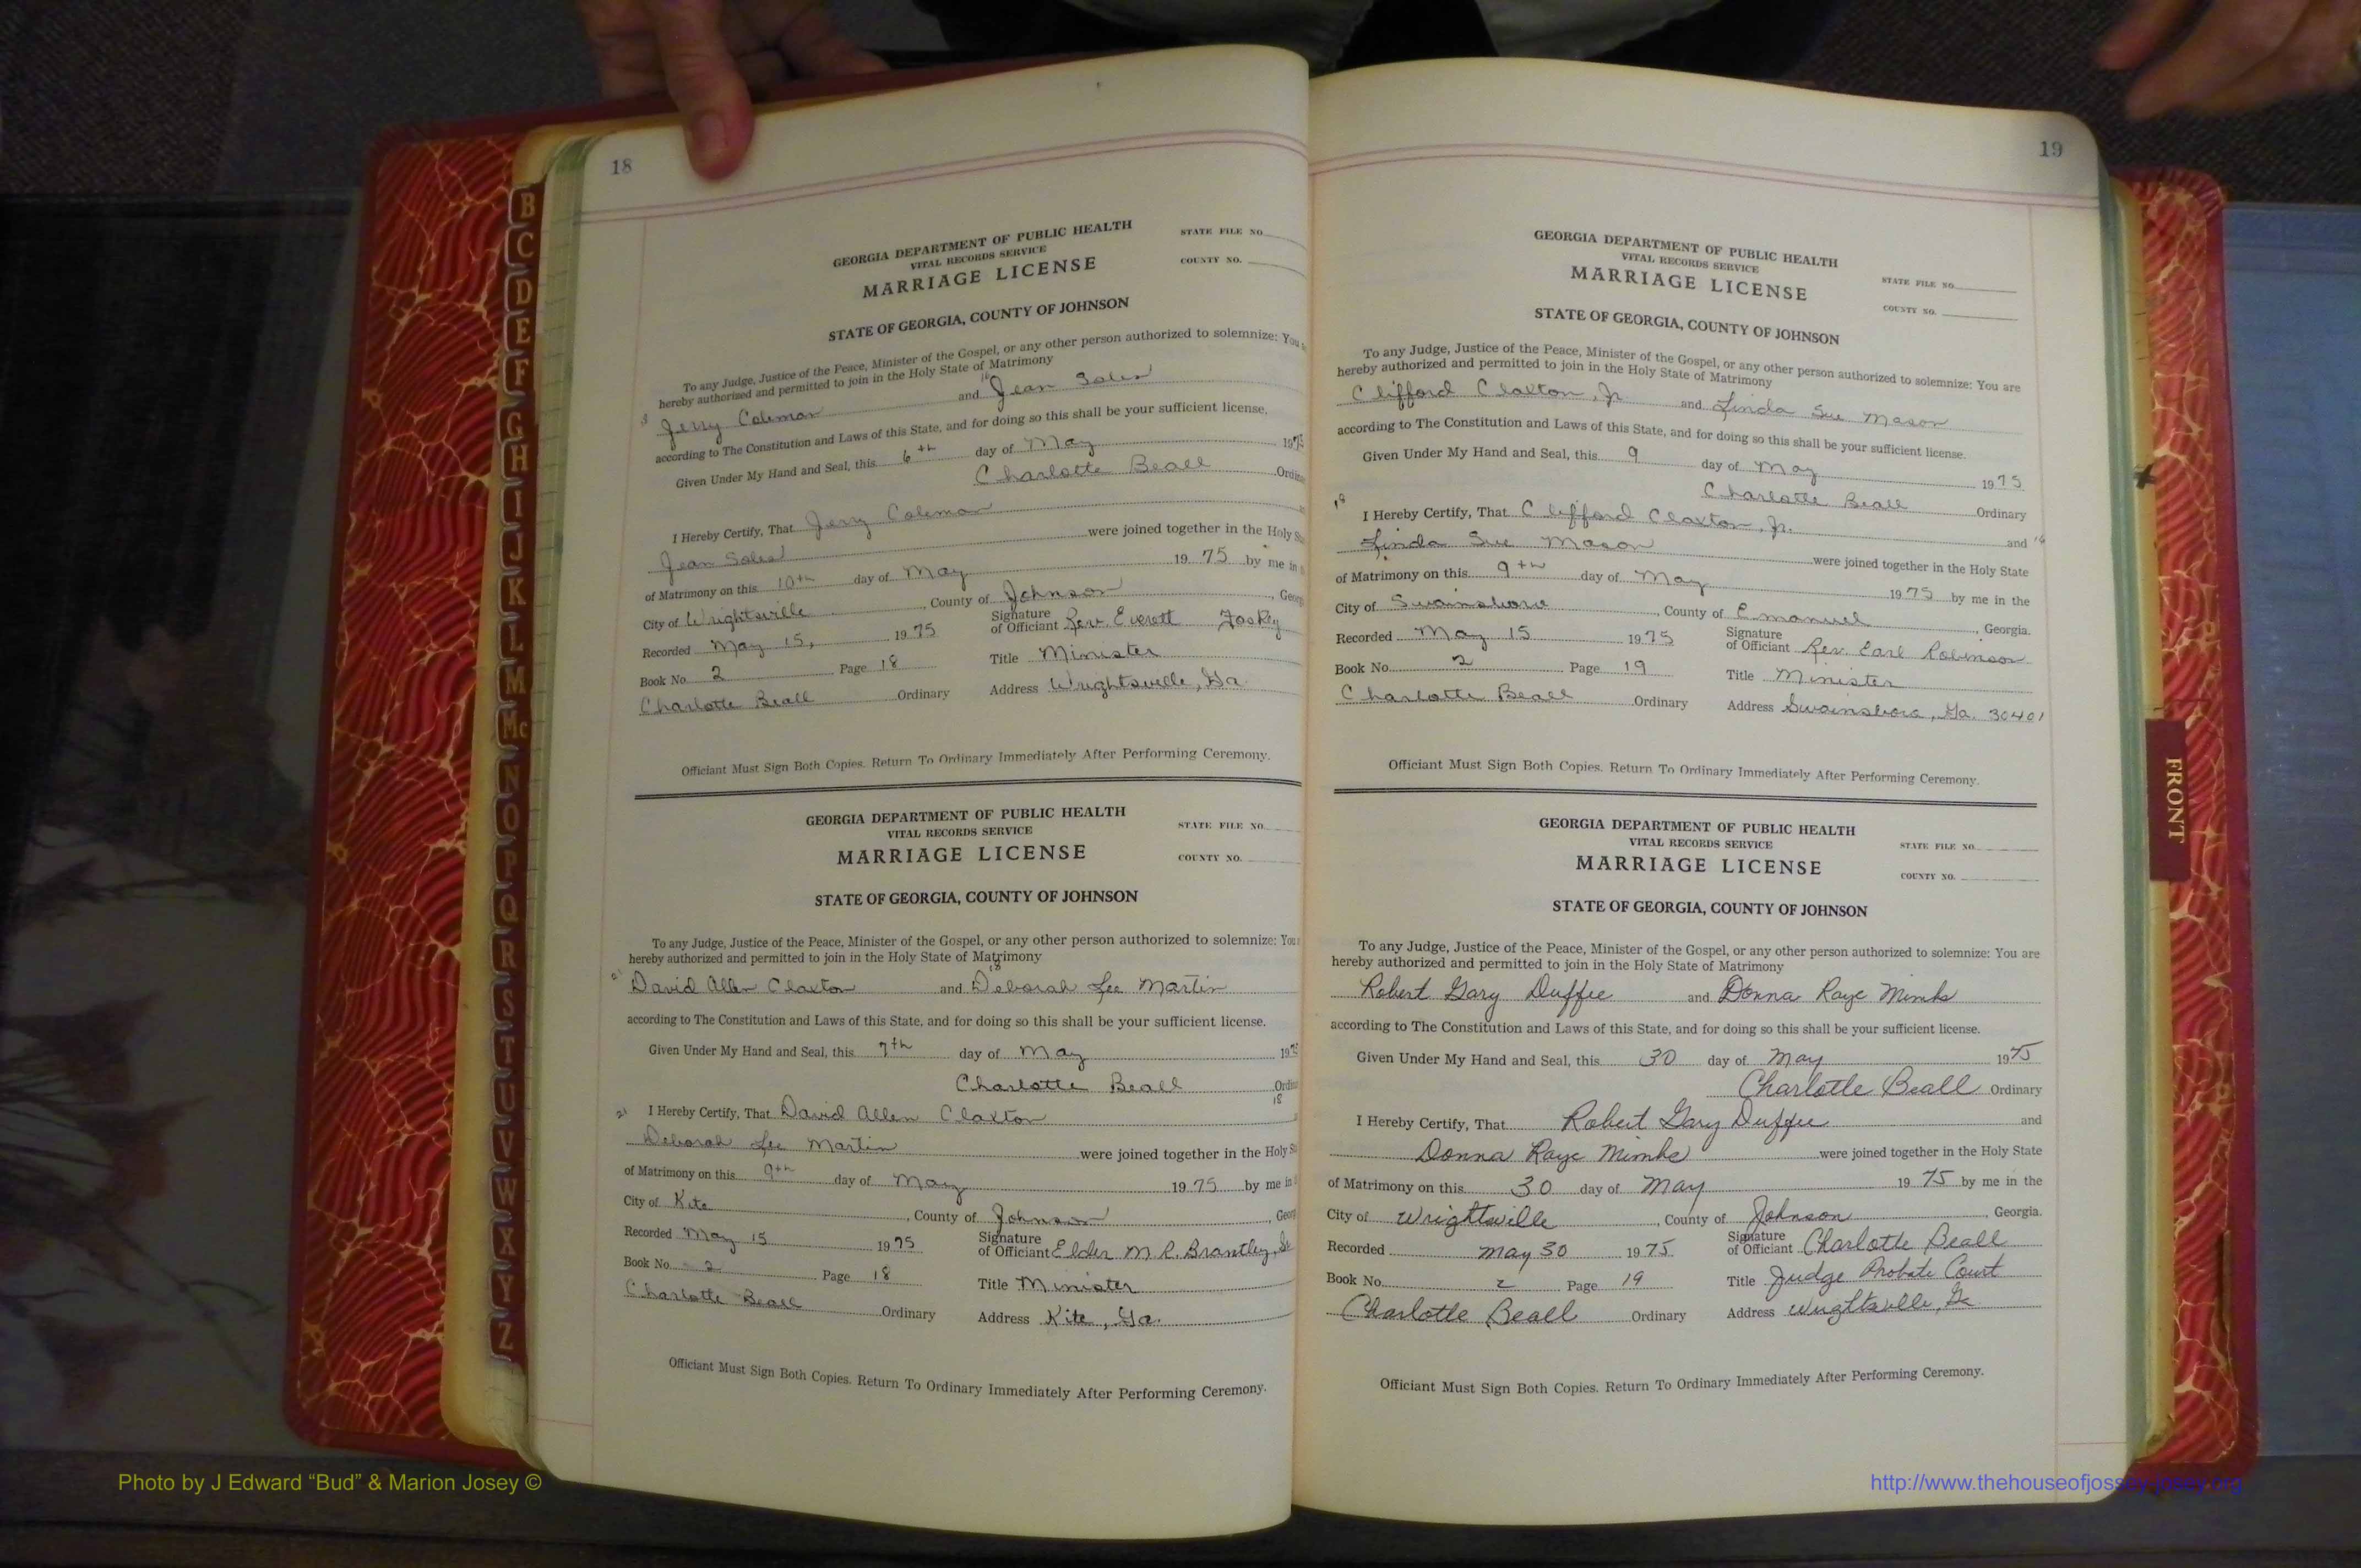 18
GEORGIA DEPARTMENT OF PUBLIC HEALTH
VITAL RECORDS SERVICE
MARRIAGE LICENSE
STATE FILE NO.
COUNTY NO.
STATE OF GEORGIA, COUNTY OF JOHNSON
To any Judge, Justice of the Peace, Minister of the Gospel, or any other person authorized to solemnize: You
hereby authorized and permitted to join in the Holy State of Matrimony
Jerry Coleman and Jean Soles
according to The Constitution and Laws of this State, and for doing so this shall be your sufficient license.
Given Under My Hand and Seal, this 6th day of May 1975
Charlotte Beall
I Hereby Certify, That Jerry Coleman
Jean Soles were joined together in the Holy
of Matrimony on this 10th day of May 1975 by me in
City of Wrightsville, County of Johnson
Recorded May 15, 1975 Signature of Officiant Rev. Everett Foskey
Book No 2 Page 18 Title Minister
Charlotte Beall Ordinary Address Wrightsville, Ga.
Officiant Must Sign Both Copies. Return To Ordinary Immediately After Performing Ceremony.
GEORGIA DEPARTMENT OF PUBLIC HEALTH
VITAL RECORDS SERVICE
MARRIAGE LICENSE
STATE FILE NO.
COUNTY NO.
STATE OF GEORGIA, COUNTY OF JOHNSON
To any Judge, Justice of the Peace, Minister of the Gospel, or any other person authorized to solemnize: You
hereby authorized and permitted to join in the Holy State of Matrimony
18
21 David Allen Claxton and Deborah Lee Martin
according to The Constitution and Laws of this State, and for doing so this shall be your sufficient license.
Given Under My Hand and Seal, this 7th day of May 1975
Charlotte Beall
18
21 I Hereby Certify, That David Allen Claxton
Deborah Lee Martin were joined together in the Holy
of Matrimony on this 9th day of May 1975 by me in
City of Kite, County of Johnson
Recorded May 15 1975 Signature of Officiant Elder M. R. Brantley, Sr
Book No. 2 Page 18 Title Minister
Charlotte Beall Ordinary Address Kite, Ga.
Officiant Must Sign Both Copies. Return To Ordinary Immediately After Performing Ceremony.
19
GEORGIA DEPARTMENT OF PUBLIC HEALTH
VITAL RECORDS SERVICE
MARRIAGE LICENSE
STATE FILE NO.
COUNTY NO.
STATE OF GEORGIA, COUNTY OF JOHNSON
To any Judge, Justice of the Peace, Minister of the Gospel, or any other person authorized to solemnize: You are
hereby authorized and permitted to join in the Holy State of Matrimony
Clifford Claxton, Jr. and Linda Sue Mason
according to The Constitution and Laws of this State, and for doing so this shall be your sufficient license.
Given Under My Hand and Seal, this 9 day of May 1975
Charlotte Beall Ordinary
18 I Hereby Certify, That Clifford Claxton, Jr. and
Linda Sue Mason were joined together in the Holy State
of Matrimony on this 9th day of May 1975 by me in the
City of Swainsboro, County of Emanuel, Georgia.
Recorded May 15 1975 Signature of Officiant Rev. Earl Robinson
Book No. 2 Page 19 Title Minister
Charlotte Beall Ordinary Address Swainsboro, Ga. 30401
Officiant Must Sign Both Copies. Return To Ordinary Immediately After Performing Ceremony.
GEORGIA DEPARTMENT OF PUBLIC HEALTH
VITAL RECORDS SERVICE
MARRIAGE LICENSE
STATE FILE NO.
COUNTY NO.
STATE OF GEORGIA, COUNTY OF JOHNSON
To any Judge, Justice of the Peace, Minister of the Gospel, or any other person authorized to solemnize: You are
hereby authorized and permitted to join in the Holy State of Matrimony
Robert Gary Duffie and Donna Raye Mimbs
according to The Constitution and Laws of this State, and for doing so this shall be your sufficient license.
Given Under My Hand and Seal, this 30 day of May 1975
Charlotte Beall Ordinary
I Hereby Certify, That Robert Gary Duffie and
Donna Raye Mimbs were joined together in the Holy State
of Matrimony on this 30 day of May 1975 by me in the
City of Wrightsville, County of Johnson, Georgia.
Recorded May 30 1975 Signature of Officiant Charlotte Beall
Book No. 2 Page 19 Title Judge Probate Court
Charlotte Beall Ordinary Address Wrightsville, Ga
Officiant Must Sign Both Copies. Return To Ordinary Immediately After Performing Ceremony.
B
C
D
E
F
G
H
I
J
K
L
M
Mc
N
O
P
Q
R
S
T
U
V
W
X
Y
Z
FRONT
Photo by J Edward “Bud” & Marion Josey ©
http://www.thehouseofjossey-josey.org